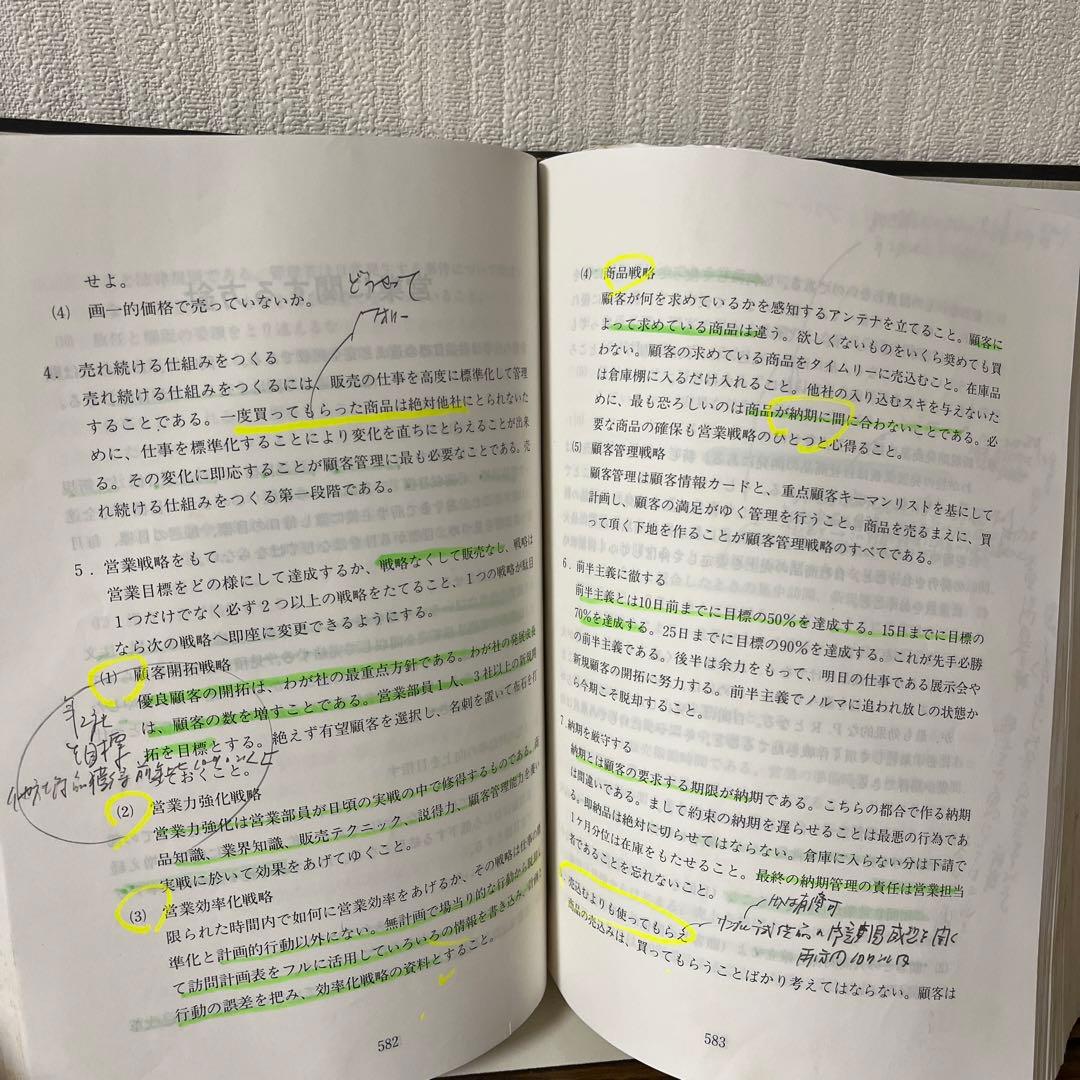 せよ。
(4) 画一的価格で売っていないか。
どうやって
4. 売れ続ける仕組みをつくる
売れ続ける仕組みをつくるには、販売の仕事を高度に標準化して管理
することである。一度買ってもらった商品は絶対他社にとられないた
めに、仕事を標準化することにより変化を直ちにとらえることが出来
る。その変化に即応することが顧客管理に最も必要なことである。売
れ続ける仕組みをつくる第一段階である。
5. 営業戦略をもて
営業目標をどの様にして達成するか、戦略なくして販売なし、戦略は
1つだけでなく必ず2つ以上の戦略をたてること、1つの戦略が駄目
なら次の戦略へ即座に変更できるようにする。
(1) 顧客開拓戦略
優良顧客の開拓は、わが社の最重点方針である。わが社の発展成長
は、顧客の数を増すことである。営業部員1人、3社以上の新規開
拓を目標とする。絶えず有望顧客を選択し、名刺を置いて布石を打
っておくこと。
年2社
を目標
(2) 営業力強化戦略
営業力強化は営業部員が日頃の実戦の中で修得するものである。商
品知識、業界知識、販売テクニック、説得力、顧客管理能力を養い
実戦に於いて効果をあげてゆくこと。
(3) 営業効率化戦略
限られた時間内で如何に営業効率をあげるか、その戦略は仕事の標
準化と計画的行動以外にない。無計画で場当り的な行動から脱皮し
て訪問計画表をフルに活用していろいろの情報を書き込み、計画と
行動の誤差を把み、効率化戦略の資料とすること。
582
(4) 商品戦略
顧客が何を求めているかを感知するアンテナを立てること。顧客に
よって求めている商品は違う。欲しくないものをいくら奨めても買
わない。顧客の求めている商品をタイムリーに売込むこと。在庫品
は倉庫棚に入るだけ入れること。他社の入り込むスキを与えないた
めに、最も恐ろしいのは商品が納期に間に合わないことである。必
要な商品の確保も営業戦略のひとつと心得ること。
(5) 顧客管理戦略
顧客管理は顧客情報カードと、重点顧客キーマンリストを基にして
計画し、顧客の満足がゆく管理を行うこと。商品を売るまえに、買
って頂く下地を作ることが顧客管理戦略のすべてである。
6. 前半主義に徹する
前半主義とは10日前までに目標の50%を達成する。15日までに目標の
70%を達成する。25日までに目標の90%を達成する。これが先手必勝
の前半主義である。後半は余力をもって、明日の仕事である展示会や
新規顧客の開拓に努力する。前半主義でノルマに追われ放しの状態か
ら今期こそ脱却すること。
7. 納期を厳守する
納期とは顧客の要求する期限が納期である。こちらの都合で作る納期
は間違いである。まして約束の納期を遅らせることは最悪の行為であ
る。即納品は絶対に切らせてはならない。倉庫に入らない分は下請で
1ヶ月分位は在庫をもたせること。最終の納期管理の責任は営業担当
者であることを忘れないこと。
売込むよりも使ってもらえ
商品の売込みは、買ってもらうことばかり考えてはならない。顧客は
583